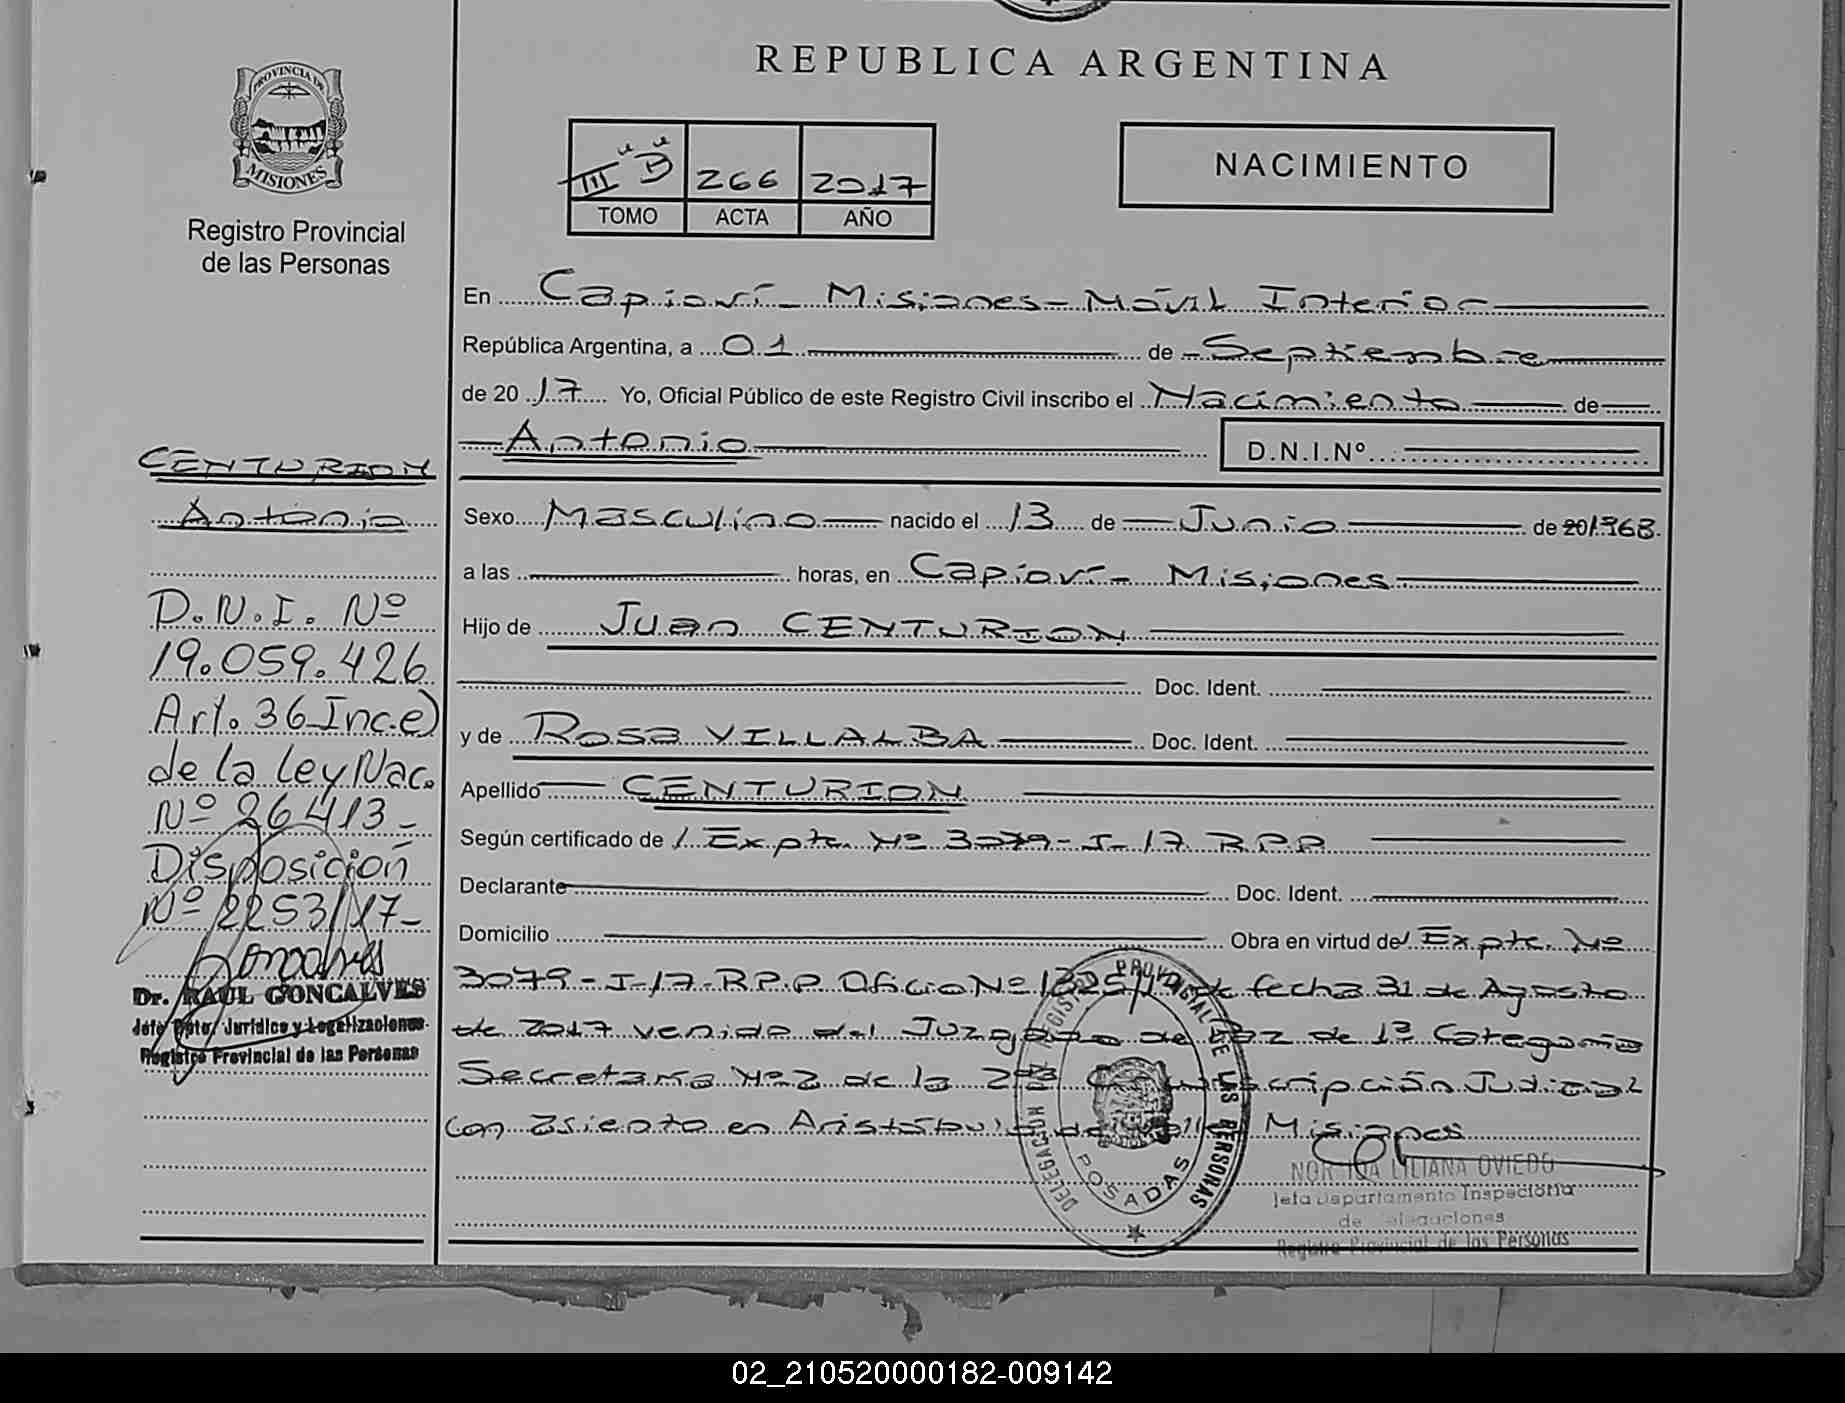 REPUBLICA ARGENTINA
PROVINCIA DE
MISIONES
Registro Provincial
de las Personas
III "D" 266 2017
TOMO ACTA AÑO
NACIMIENTO
En Capioví - Misiones - Móvil Interior
República Argentina, a 01 de Septiembre
de 2017 Yo, Oficial Público de este Registro Civil inscribo el Nacimiento de
Antonio D.N.I.Nº
Sexo Masculino nacido el 13 de Junio de 201968
a las horas, en Capioví - Misiones
Hijo de Juan CENTURION
Doc. Ident.
y de Rosa VILLALBA Doc. Ident.
Apellido CENTURION
Según certificado de / Expte. Nº 3079-I-17 R.P.P
Declarante Doc. Ident.
Domicilio Obra en virtud de/ Expte. Nº
3079-I-17-R.P.P Oficio Nº de fecha 31 de Agosto
de 2017 venido del Juzgado de Paz de 1ª Categoría
Secretaría Nº 2 de la 2da Circunscripción Judicial
con asiento en Aristóbulo del Valle Misiones
CENTURION
Antonio
D.N.I. Nº
19.059.426
Art. 36 Inc.e)
de la ley Nac.
Nº 26413-
Disposición
Nº 2253/17-
Dr. RAUL GONCALVES
Jefe Dpto. Jurídico y Legalizaciones
Registro Provincial de las Personas
DELEGACION DEL REGISTRO PROVINCIAL DE LAS PERSONAS
POSADAS
LILIANA OVIEDO
Jefa Departamento Inspectoria
de Delegaciones
Registro Provincial de las Personas
02_210520000182-009142